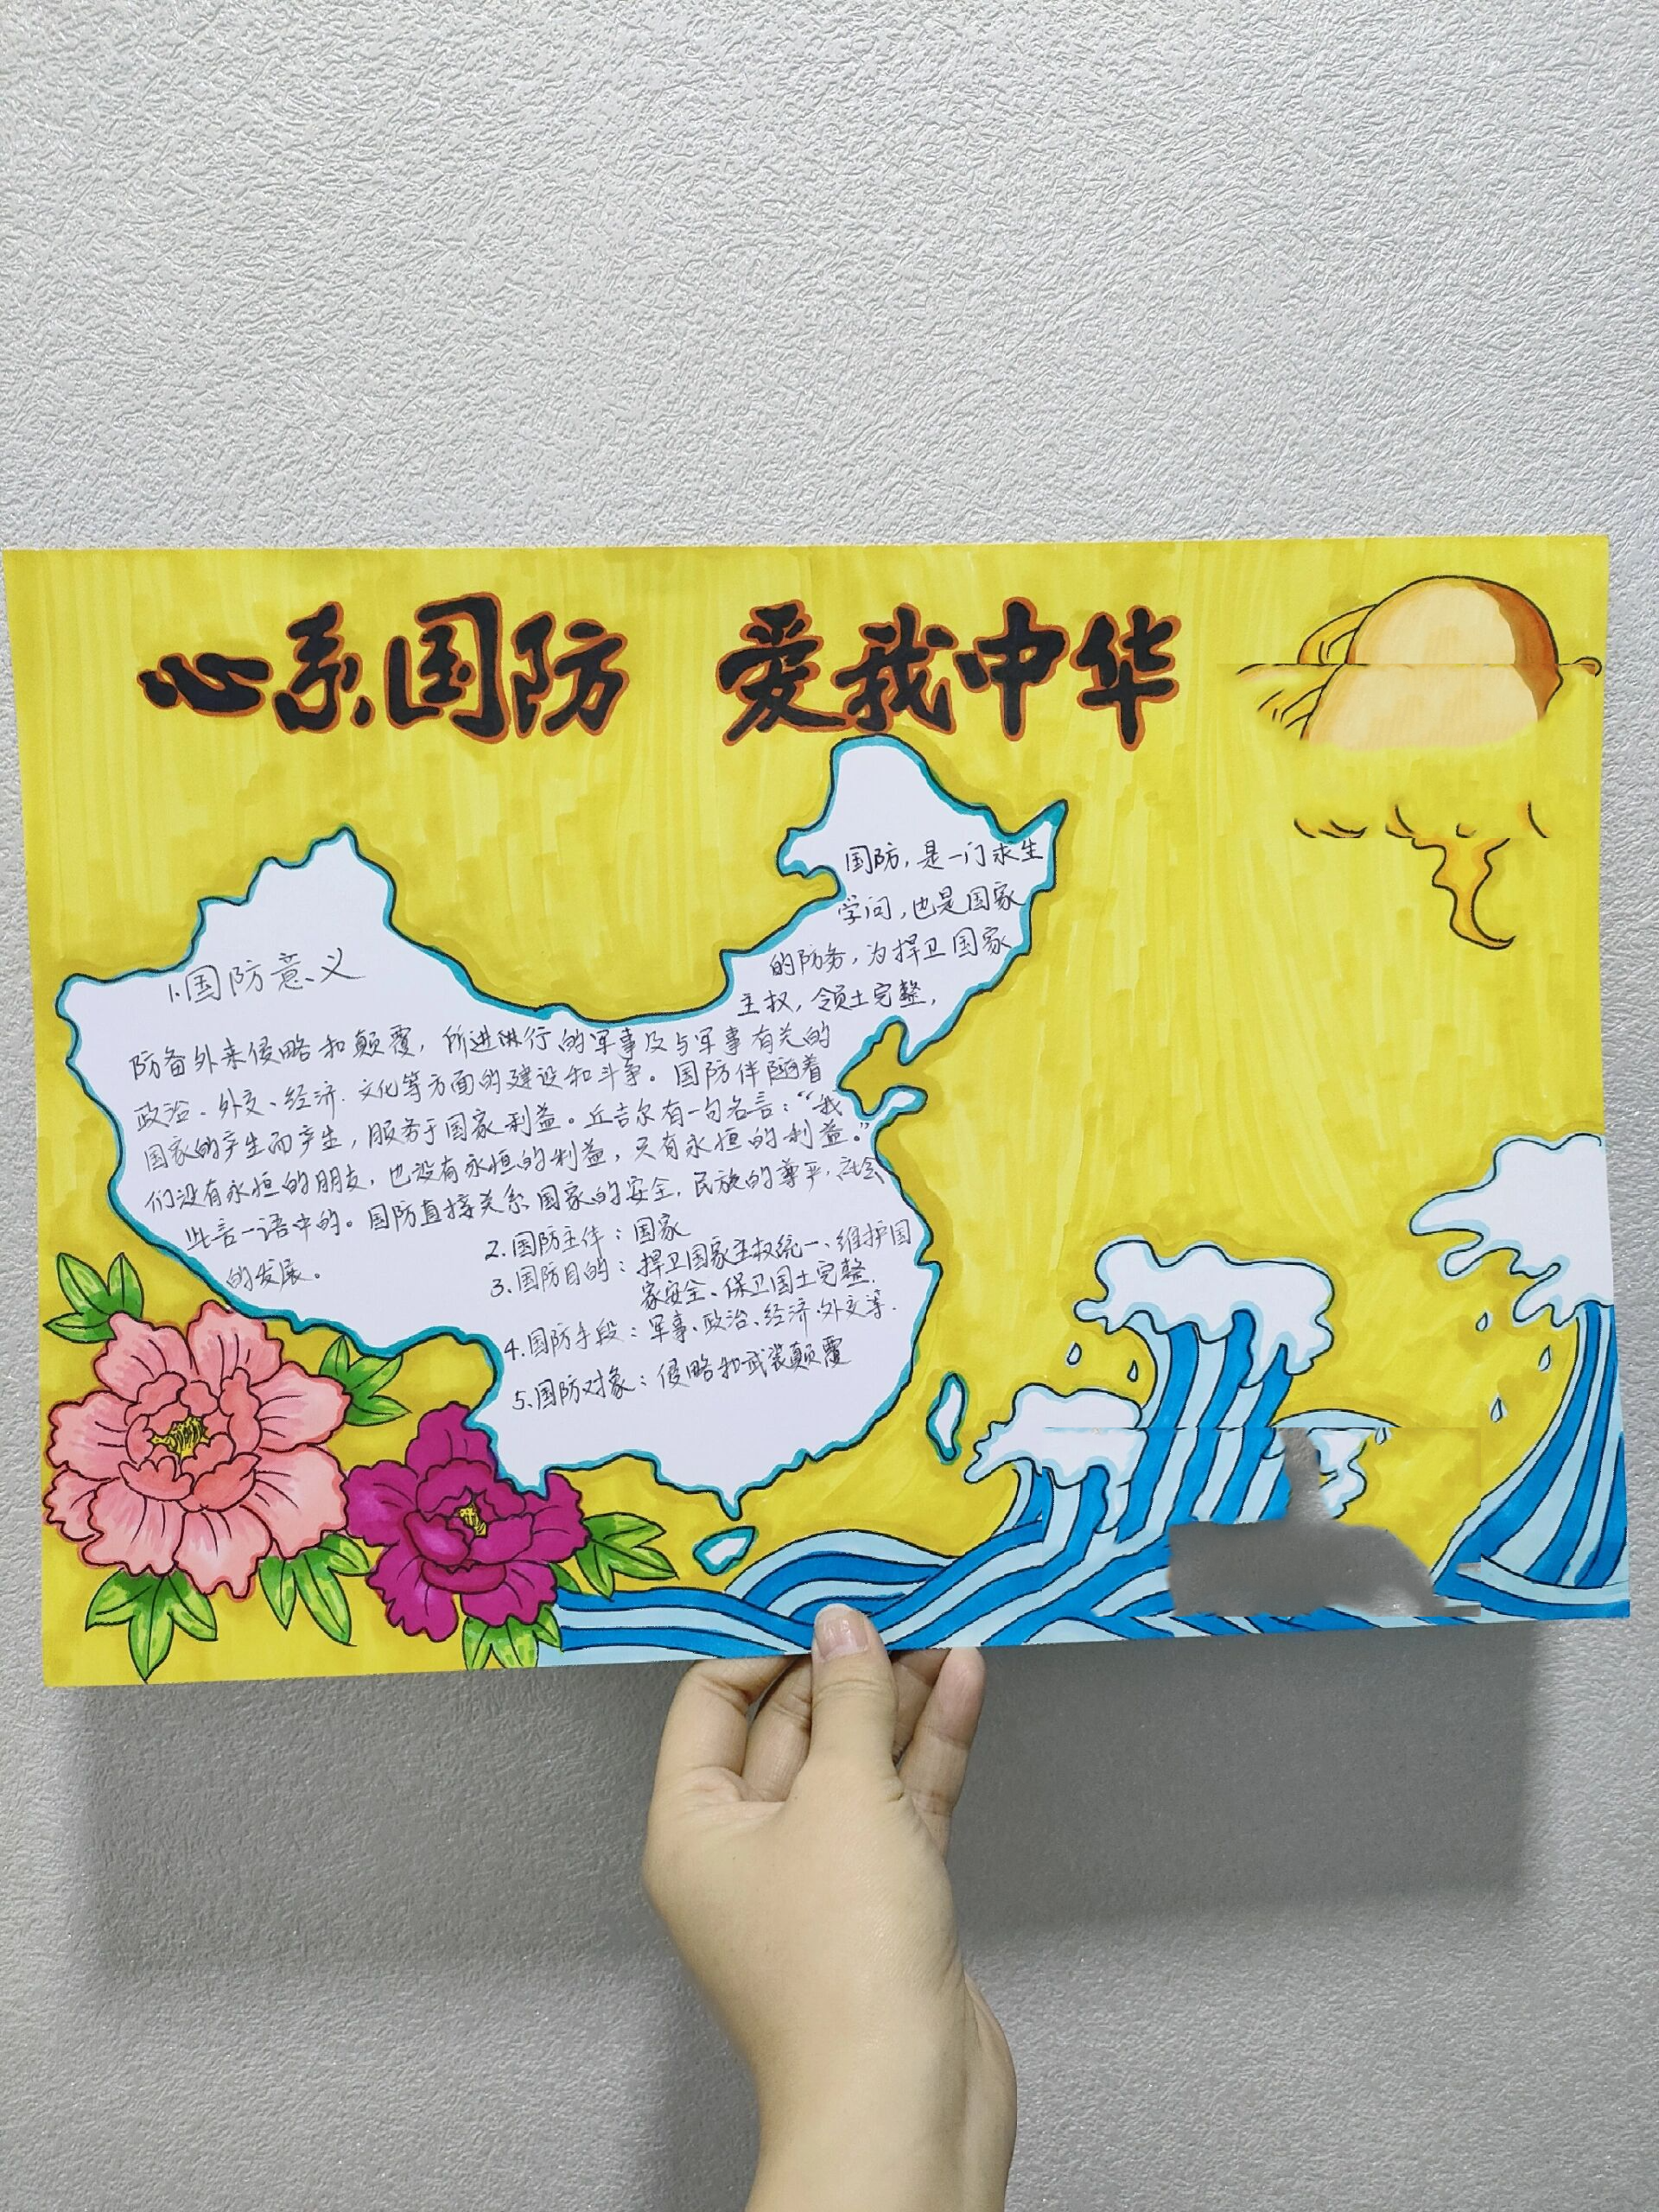 心系国防 爱我中华
国防，是一门求生
学问，也是国家
的防务，为捍卫国家
主权，领土完整，
1.国防意义
防备外来侵略和颠覆，所进行的军事及与军事有关的
政治、外交、经济、文化等方面的建设和斗争。国防伴随着
国家的产生而产生，服务于国家利益。丘吉尔有一句名言：“我
们没有永恒的朋友，也没有永恒的利益，只有永恒的利益。”
此言一语中的。国防直接关系国家的安全，民族的尊严，社会
的发展。
2.国防主体：国家
3.国防目的：捍卫国家主权统一、维护国
家安全、保卫国土完整.
4.国防手段：军事、政治、经济、外交等.
5.国防对象：侵略和武装颠覆